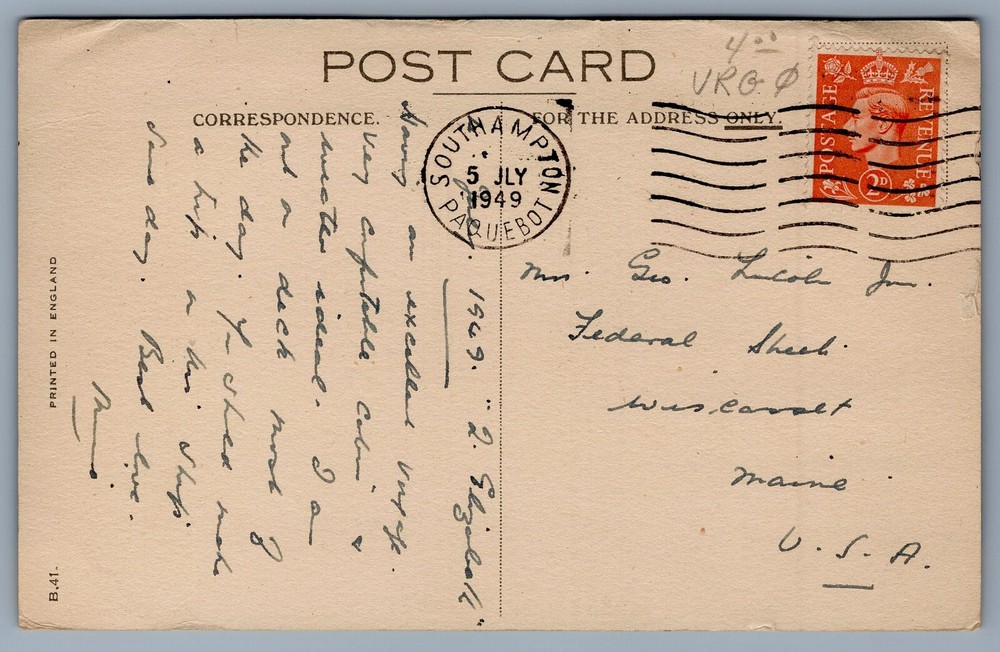 POST CARD
4.00
CORRESPONDENCE.
FOR THE ADDRESS ONLY.
POSTAGE
REVENUE
2D
SOUTHAMPTON
5 JLY
1949
PAQUEBOT
1949. "Q. Elizabeth"
Having an excellent voyage.
Very comfortable cabin &
weather ideal. I am
out on deck most of
the day. You should make
a trip on this ship
some day. Best love.
Mrs. Geo. Lincoln Jnr.
Federal Street
Wiscasset
Maine
U.S.A.
PRINTED IN ENGLAND
B.41.